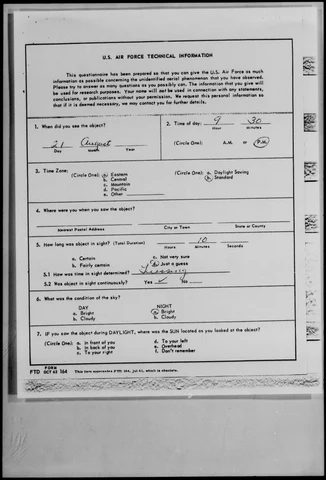 U.S. AIR FORCE TECHNICAL INFORMATION
This questionnaire has been prepared so that you can give the U.S. Air Force as much
information as possible concerning the unidentified aerial phenomenon that you have observed.
Please try to answer as many questions as you possibly can. The information that you give will
be used for research purposes. Your name will not be used in connection with any statements,
conclusions, or publications without your permission. We request this personal information so
that if it is deemed necessary, we may contact you for further details.
1. When did you see the object?
21 August
Day Month Year
2. Time of day: 9 30
Hour Minutes
(Circle One): A.M. or P.M.
3. Time Zone:
(Circle One): a. Eastern
b. Central
c. Mountain
d. Pacific
e. Other
(Circle One): a. Daylight Saving
b. Standard
4. Where were you when you saw the object?
Nearest Postal Address City or Town State or County
5. How long was object in sight? (Total Duration) 10
Hours Minutes Seconds
a. Certain c. Not very sure
b. Fairly certain d. Just a guess
5.1 How was time in sight determined? Guessing
5.2 Was object in sight continuously? Yes ✓ No
6. What was the condition of the sky?
DAY NIGHT
a. Bright a. Bright
b. Cloudy b. Cloudy
7. IF you saw the object during DAYLIGHT, where was the SUN located as you looked at the object?
(Circle One): a. In front of you d. To your left
b. In back of you e. Overhead
c. To your right f. Don't remember
FORM
FTD OCT 62 164 This form supersedes FTD 164, Jul 61, which is obsolete.